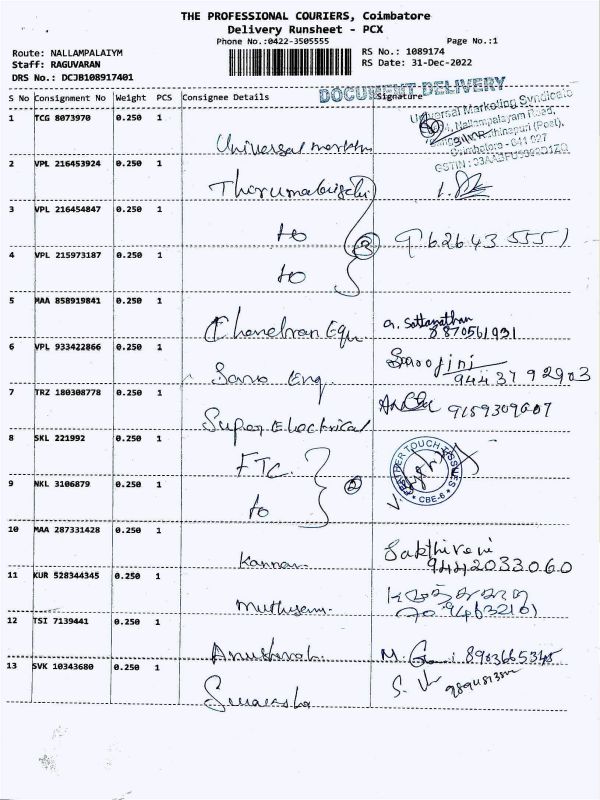 THE PROFESSIONAL COURIERS, Coimbatore
Delivery Runsheet - PCX
Phone No.:0422-3505555 Page No.:1
Route: NALLAMPALAIYM RS No.: 1089174
Staff: RAGUVARAN RS Date: 31-Dec-2022
DRS No.: DCJB108917401
DOCUMENT DELIVERY
S No Consignment No Weight PCS Consignee Details Signature
Universal Marketing Syndicate
Nallampalayam Road,
1 TCG 8073970 0.250 1 Universal
2 VPL 216453924 0.250 1
3 VPL 216454847 0.250 1 to 3 9626435551
4 VPL 215973187 0.250 1 to
5 MAA 858919841 0.250 1 Chandran Equ a. Sattanathan
8870561931
6 VPL 933422866 0.250 1 Saro Eng Saroojini
9443792903
7 TRZ 180308778 0.250 1 Super Electrical 9159309607
8 SKL 221992 0.250 1 FTC. 2 FEATHER TOUCH TISSUES CBE-6
9 NKL 3106879 0.250 1 to
10 MAA 287331428 0.250 1 Kannan Sakthiveni
9442033060
11 KUR 528344345 0.250 1
12 TSI 7139441 0.250 1 M. 8903665345
13 SVK 10343680 0.250 1 S.